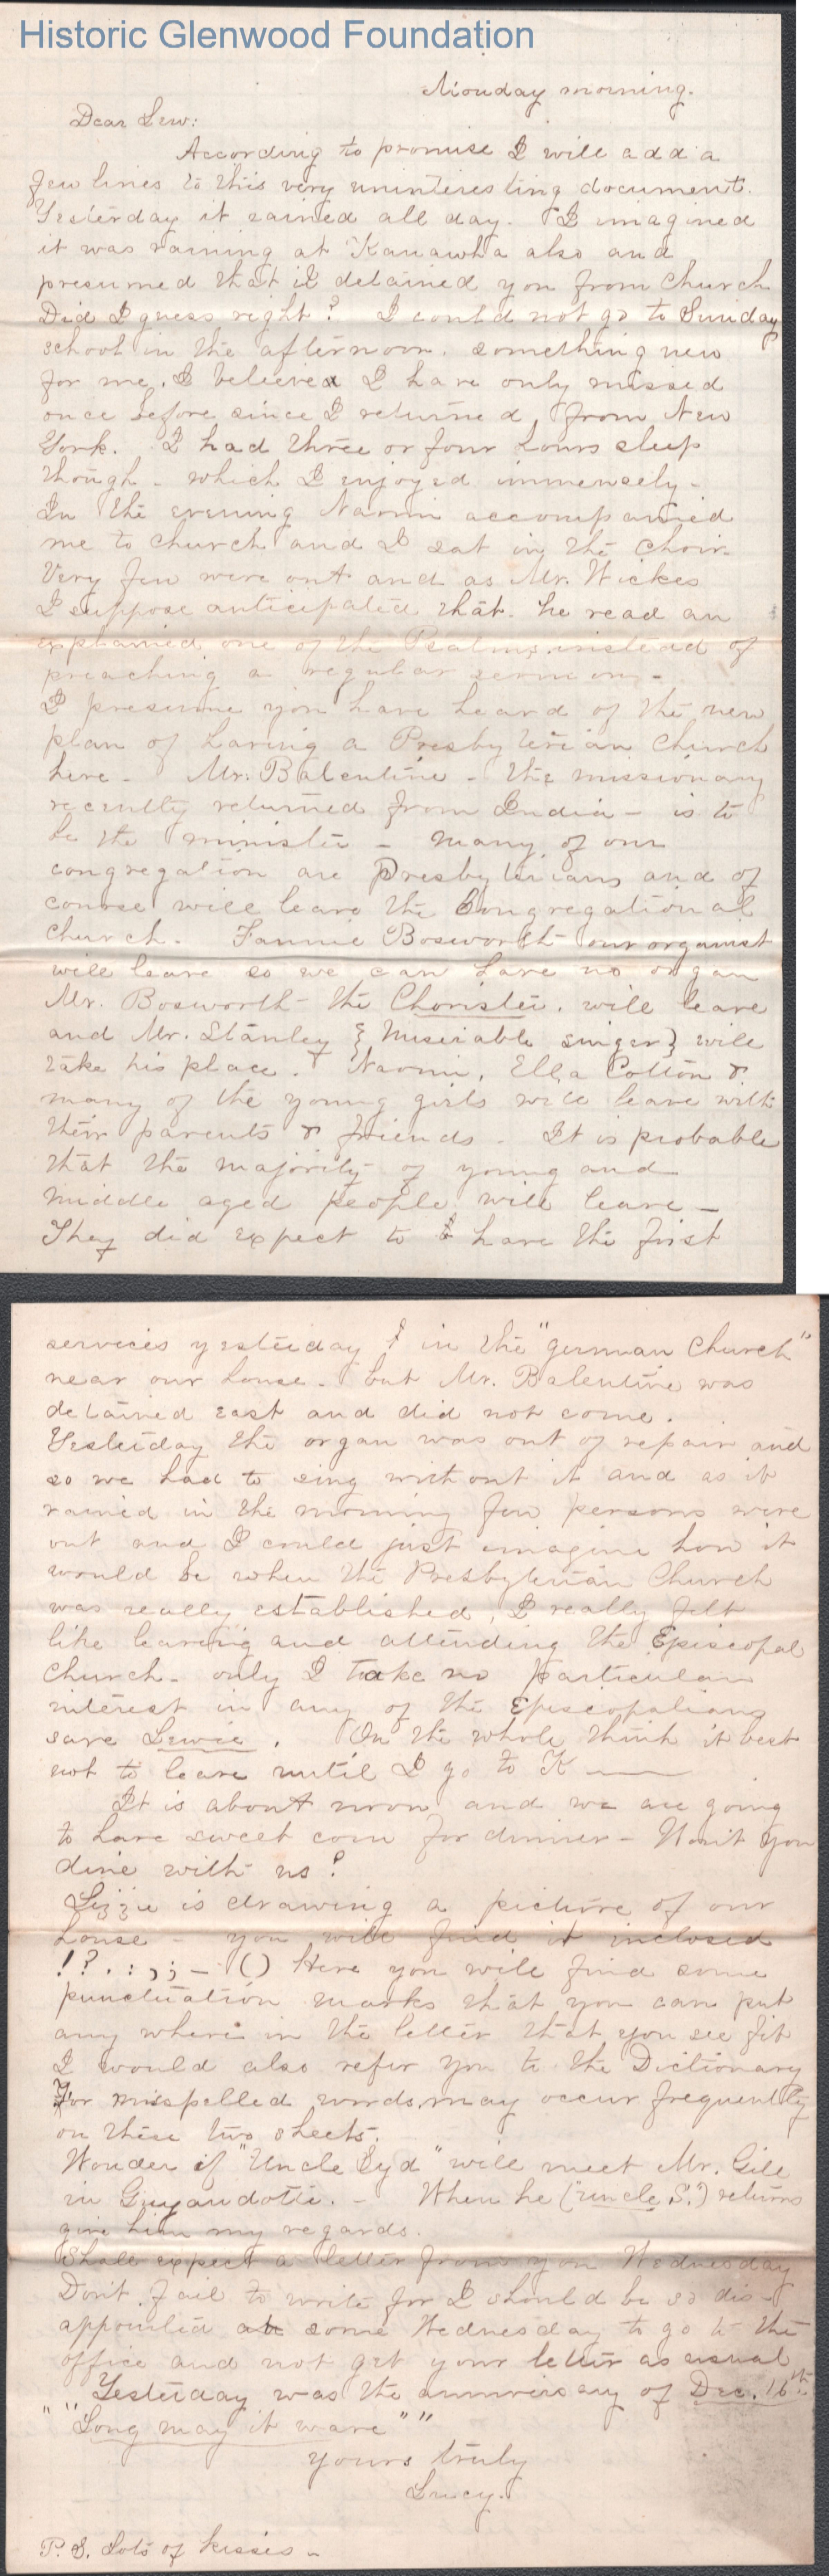 Historic Glenwood Foundation
Monday morning.
Dear Lew:
According to promise I will add a
few lines to this very uninteresting document.
Yesterday it rained all day. I imagined
it was raining at Kanawha also and
presumed that it detained you from church
Did I guess right? I could not go to Sunday
school in the afternoon. something new
for me. I believe I have only missed
once before since I returned, from New
York. I had three or four hours sleep
though - which I enjoyed immensely -
In the evening Naomi accompanied
me to church and I sat in the choir.
Very few were out and as Mr. Wickes
I suppose anticipated that. he read an
explained one of the Psalms, instead of
preaching a regular sermon -
I presume you have heard of the new
plan of having a Presbyterian church
here - Mr. Balentine - the missionary
recently returned from India - is to
be the minister - many of our
congregation are Presbyterians and of
course will leave the Congregational
church. Fannie Bosworth our organist
will leave so we can have no organ
Mr. Bosworth - the Chorister. will leave
and Mr. Stanley { miserable singer } will
take his place. Naomi, Ella Cotton &
many of the young girls will leave with
their parents & friends - It is probable
that the majority of young and
middle aged people will leave -
They did expect to have the first
services yesterday in the "german church"
near our house - but Mr. Balentine was
detained east and did not come.
Yesterday the organ was out of repair and
so we had to sing without it and as it
rained in the morning few persons were
out and I could just imagine how it
would be when the Presbyterian Church
was really established, I really felt
like leaving and attending the Episcopal
church - only I take no particular
interest in any of the Episcopalians
save Lewie. On the whole think it best
not to leave until I go to K——
It is about noon and we are going
to have sweet corn for dinner - Won't you
dine with us?
Lizzie is drawing a picture of our
house - you will find it inclosed
! ? . : , ; - ( ) Here you will find some
punctuation marks that you can put
any where in the letter that you see fit
I would also refer you to the Dictionary
For misspelled words, may occur frequently
on these two sheets.
Wonder if "Uncle Syd" will meet Mr. Gill
in Guyandotte. - When he (uncle S.) returns
give him my regards.
Shall expect a letter from you Wednesday
Don't fail to write for I should be so dis-
appointed some Wednesday to go to the
office and not get your letter as usual
Yesterday was the anniversary of Dec. 16th
" " Long may it wave " "
yours truly
Lucy.
P.S. Lots of kisses -